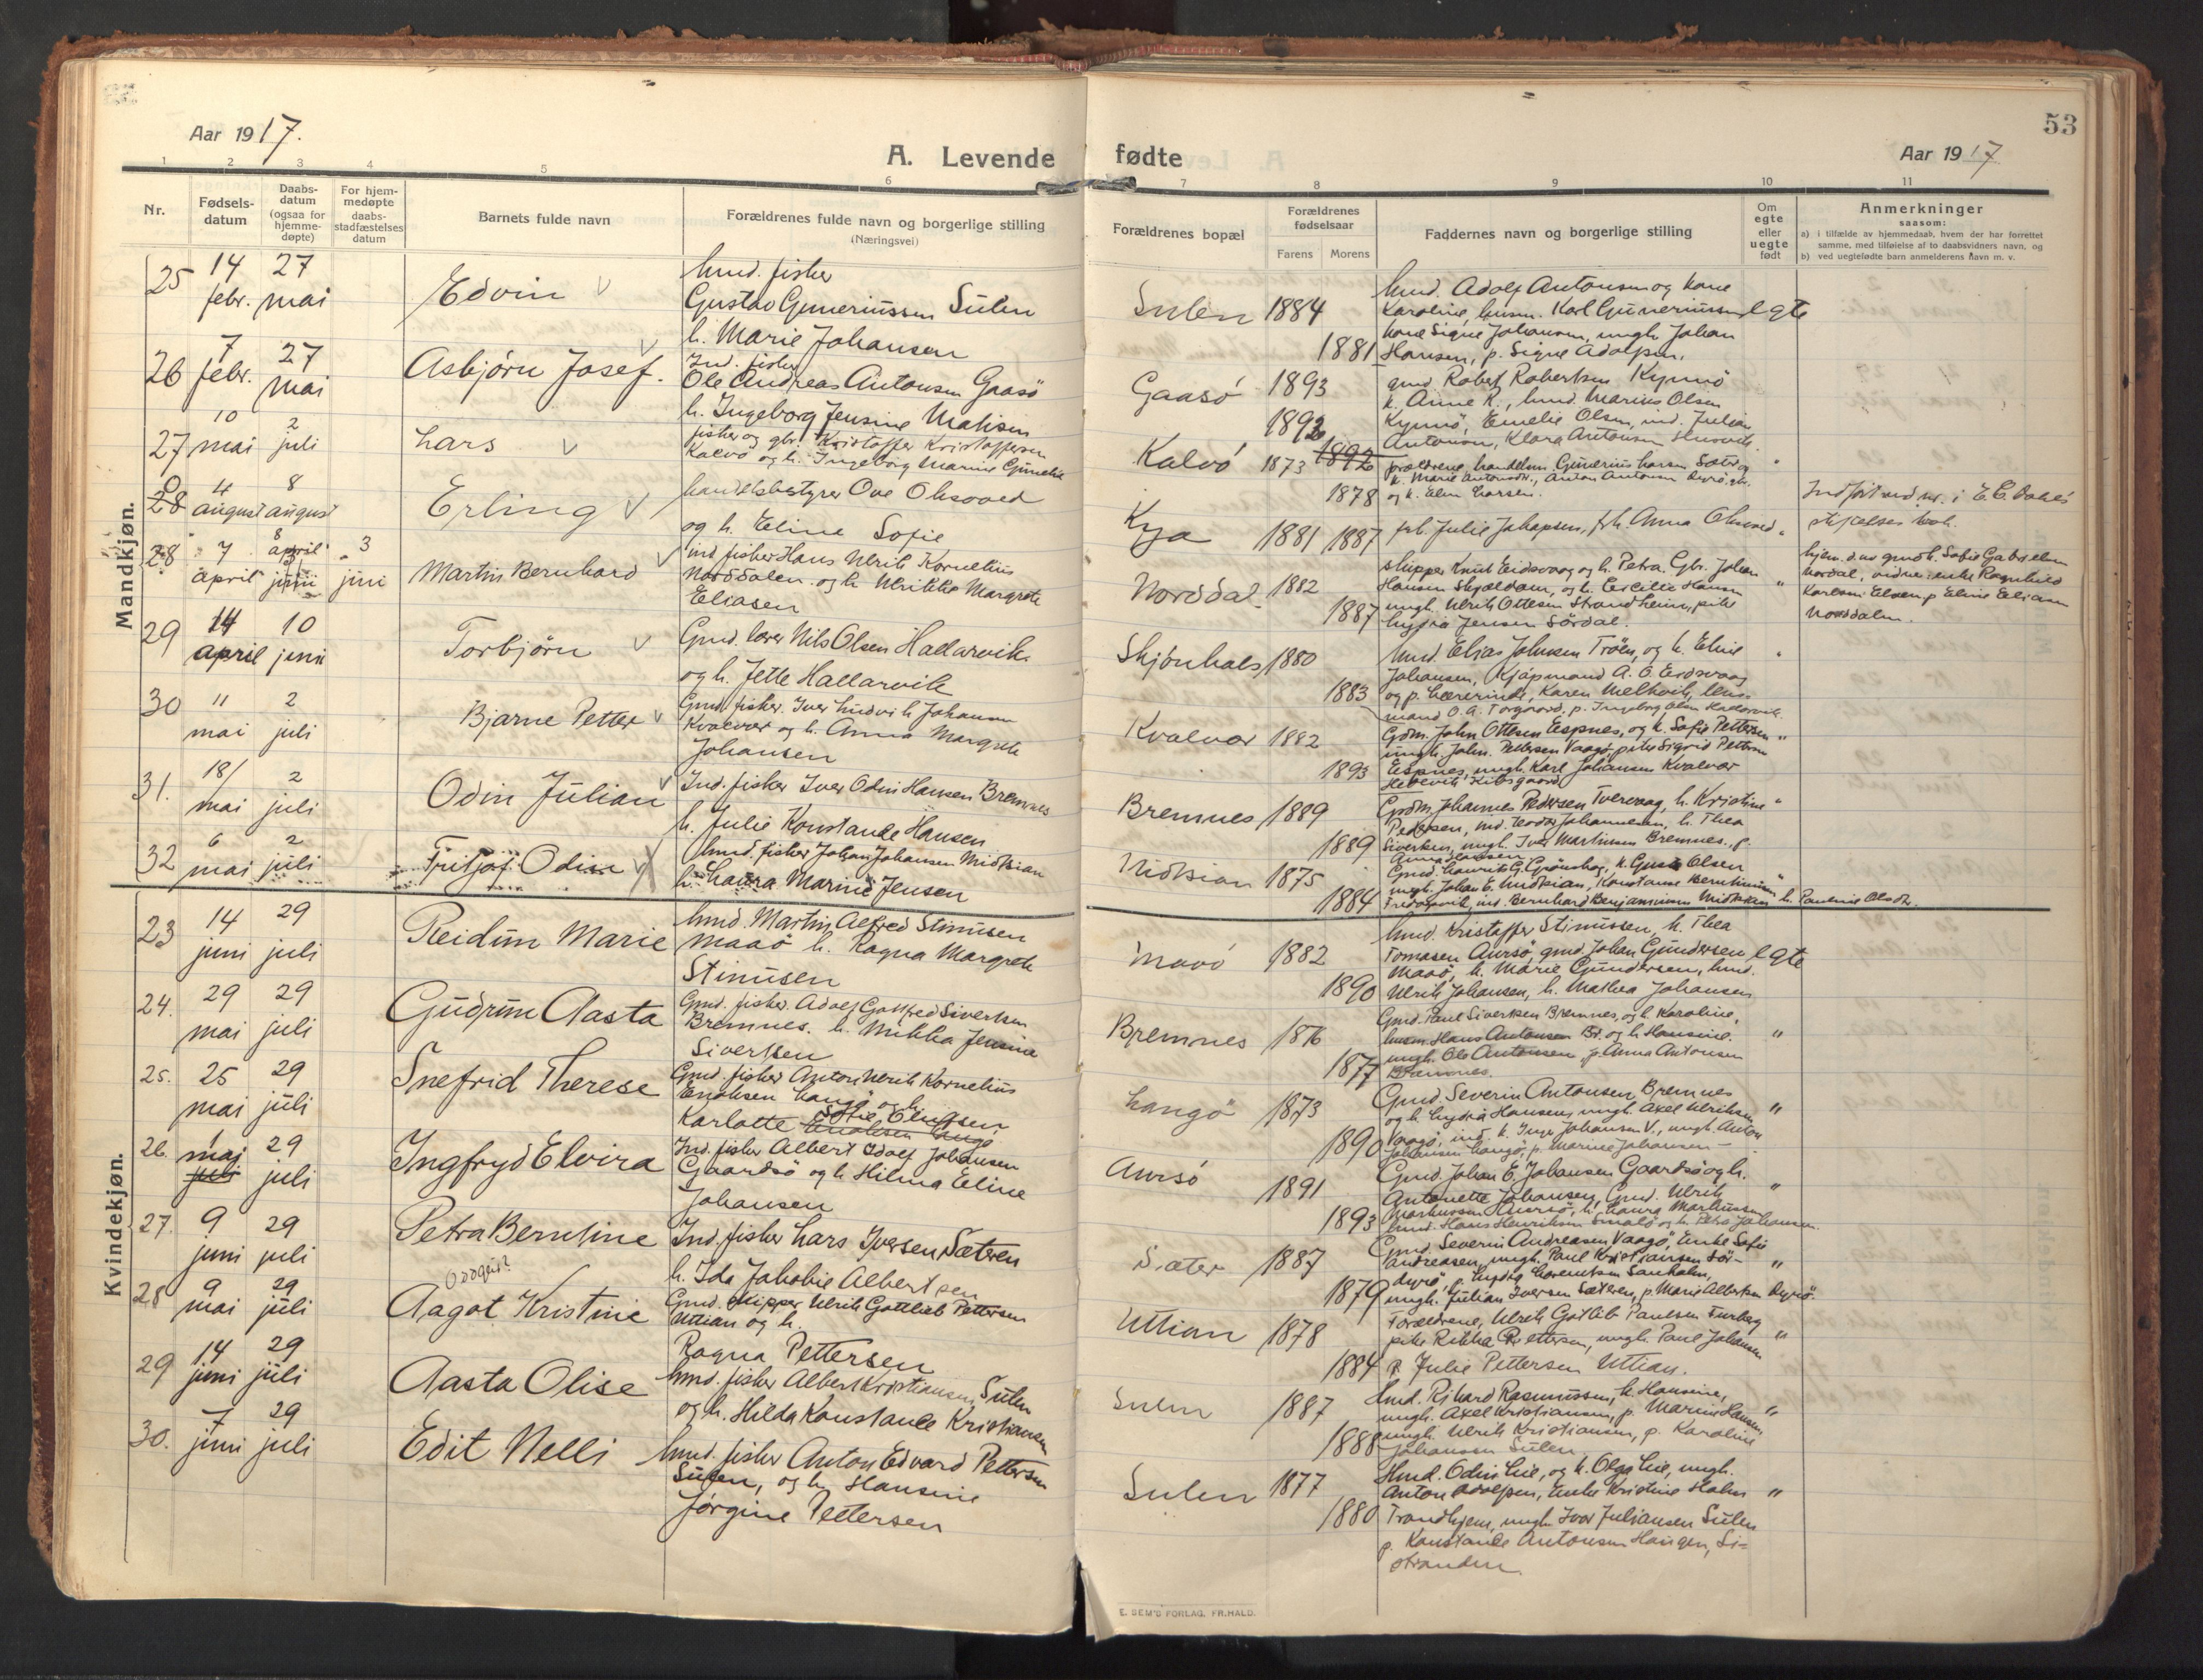 53
Aar 1917.
A. Levende fødte
Aar 1917
1 2 3 4 5 6 7 8 9 10 11
Nr.
Fødsels-
datum
Daabs-
datum
(ogsaa for
hjemme-
døpte)
For hjem-
medøpte
daabs-
stadfæstelses
datum
Barnets fulde navn
Forældrenes fulde navn og borgerlige stilling
(Næringsvei)
Forældrenes bopæl
Forældrenes
fødselsaar
Farens Morens
Faddernes navn og borgerlige stilling
Om
egte
eller
uegte
født
Anmerkninger
saasom:
a) i tilfælde av hjemmedaab, hvem der har forrettet
samme, med tilføielse af to daabsvidners navn, og
b) ved uegtefødte barn anmelderens navn m. v.
Mandkjøn.
25 14 febr. 27 mai Edvin
hmd. fisker
Gustav Guneriussen Sulen
h. Marie Johansen
Sulen 1884 1881
hmd. Adolf Antonsen og kone
Karoline, husm. Karl Guneriussen egte
kone Signe Johansen, ungk. Johan
Hansen, p. Signe Adolfsen.
26 7 febr. 27 mai Asbjørn Josef.
Ind. fisker
Ole Andreas Antonsen Gaasö
h. Ingeborg Jensine Matisen
Gaasö 1893 1892
gmd. Robert Robertsen Kynnö
k. Anne R., hmd. Marius Olsen
Kynnö, Emelie Olsen, ind. Julian
Antonsen, Klara Antonsen
27 10 mai 2 juli Lars
fisker og gbr. Kristoffer Kristoffersen
Kalvö og h. Ingeborg Marine
Kalvö 1873 1892 1878
forældrene, handelsm. Gunerius Larsen Sæter og
k. Marie Antonsdtr., Anton Antonsen Dyrö, gk.
og k. Elen Larsen.
28 4 august 8 august Erling
handelsbestyrer Ove Olsvoed
og h. Eline Sofie
Kya 1881 1887
frk. Julie Johansen, frk. Anna
Indført ved nr. i
28 7 april 8 april 3 juni Martin Bernhard
ind. fisker Hans Ulrik Kornelius
Norddalen og h. Ulrikke Margrete
Eliasen
Norddal 1882 1887
skipper Knut Eidsvaag og h. Petra. Gbr. Johan
Hansen Skjældam, og h. Cecilie Hansen "
ungk. Ulrik Ottesen Strandheim, pike
Lydia Jensen Sördal.
hjem.d. av gmdk. Sofie Gabrielsen
Nordal, vidner: enke Ragnhild
Karlsen Elven p Eline Eliasen
Norddalen.
29 14 april 10 juni Torbjørn
Gmd. lærer Nils Olsen Hallarvik
og h. Jette Hallarvik
Skjönhals 1880 1883
hmd. Elias Johnsen Tröen, og k. Eline
Johansen, Kjøpmand A. O. Eidsvaag
og p. Lærerinde, Karen Melhvik,
mand O. A. Torgaard, p. Ingeborg Olsen Hallarvik.
30 11 mai 2 juli Bjarne Petter
Gmd. fisker. Iver Ludvik Johansen
Kvalvær og h. Anna Margrete
Johansen
Kvalvær 1882 1893
Gdm. John Ottesen Espnes, og k. Sofie Pettersen "
ungk. John Pettersen Vaagö, pike Sigrid Pettersen
Espnes, ungk. Karl Johansen Kvalvær
31. 18/ mai 2 juli Odin Julian
Ind. fisker Iver Odin Hansen Bremnes
h. Julie Konstance Hansen
Bremnes 1889 1889
Grdm. Johannes Pedersen Tvervaag, h. Kristine "
Pedersen, ind. Johannesen, h. Thea
Sivertsen, ungk. Iver Martinsen Bremnes, p.
Anna Hansen
32 6 mai 2 juli Fritjof Odin
hmd. fisker Johan Johansen Midtsian
h. Laura Marine Jensen
Midtsian 1875 1884
Gmd. Laurits G. Grönskag, k. Olsen
ungk. Johan E. Midtsian, Konstanse Berntinussen
Fredagsvik, ind. Bernhard Benjaminsen Midtsian h. Pauline Olsdtr.
Kvindekjøn.
23 14 juni 29 juli Reidun Marie
hmd. Martin Alfred Stinusen
Maaö h. Ragna Margrete
Stinusen
Maaö 1882 1890
hmd. Kristoffer Stinussen, k. Thea
Tomasen Aursö, gmd. Johan Gundersen egte
Maaö, h. Marie Gundersen, hmd.
Ulrik Johansen, h. Mathea Johansen
24. 29 mai 29 juli Gudrun Aasta
Gmd. fisker Adolf Gotfred Sivertsen
Bremnes. h. Mikka Jensine
Sivertsen
Bremnes 1876 1877
Gmd. Paul Sivertsen Bremnes, og h. Karoline,
husm. Hans Antonsen Br. og h. Hansine. "
ungk. Ole Antonsen, p. Anna Antonsen
Bremnes.
25. 25 mai 29 juli Snefrid Therese
Gmd. fisker Anton Ulrik Kornelius
Enoksen Langö og h.
Karlotte Sofie Enoksen
Langö 1873 1890
Gmd. Severin Antonsen Bremnes
og h. Lydia Hansen, ungk. Axel Ulriksen "
Vaagö, ind. k. Inge Johansen V., ungk. Anton
Johansen Langö, p. Marine Johansen –
26. 1 mai 29 juli Ingfryd Elvira
Ind. fisker Albert Idolf Johansen
Gaardsö og h. Hilma Eline
Johansen
Aursö 1891 1893
Gmd. Johan E. Johansen Gaardsö og h.
Antonette Johansen, Gmd. Ulrik "
Markussen Aursö, h. Laura Markussen
hmd. Hans Henriksen Smalö og h. Petra Johansen.
27. 9 juni 29 juli Petra Berntine
Ind. fisker Lars Iversen Sæteren
h. Ida Jakobie Albertsen
Sæter 1887 1879
Gmd. Severin Andreasen Vaagö, Enke Sofie
Andreasen, ungk. Paul Kristiansen Sör- "
dyrö, p. Lydia Lorentsen Sanholm,
ungk. Julian Iversen Sæteren, p. Marie Albertsen Dyrö.
28 9 mai 29 juli Aagot Kristine
Gmd. skipper Ulrik Gottlieb Pettersen
Uttian og h.
Ragna Pettersen
Uttian 1878 1884
Forældrene, Ulrik Gotlib Paulsen Furberg
pike Rikka Pettersen, ungk. Paul Johansen "
p. Julie Pettersen Uttian.
29 14 juni 29 juli Aasta Olise
hmd. fisker Albert Kristiansen, Sulen
og h. Hilda Konstance Kristiansen
Sulen 1887 1888
hmd. Rikard Rasmussen, h. Hansine,
ungk. Axel Kristiansen, p. Marie Hansen "
ungk. Ulrik Kristiansen, p. Karoline
Johansen Sulen
30. 7 juni 29 juli Edit Nelli
hmd. fisker Anton Edvard Pettersen
Sulen, og h. Hansine
Jörgine Pettersen
Sulen 1877 1880
Hmd. Odin Lie, og k. Olga Lie, ungk.
Anton Adolfsen, Enke Kristine Holm "
Trondhjem, ungk. Ivar Juliansen Sulen
p. Konstance Antonsen Haugen, Si-
stranden.
E. SEM'S FORLAG, FR.HALD.